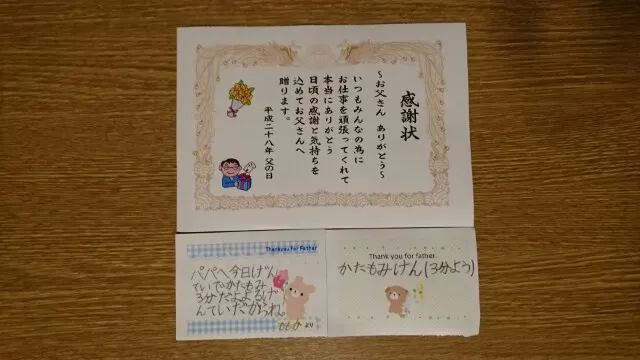 感謝状
～お父さん ありがとう～
いつもみんなの為に
お仕事を頑張ってくれて
本当にありがとう
日頃の感謝と気持ちを
込めてお父さんへ
贈ります。
平成二十八年 父の日
Thank you for Father
パパへ今日げん
ていでかたもみ
3分だよよるげ
んていだからね。
より
Thank you for father.
かたもみけん(3分よう)